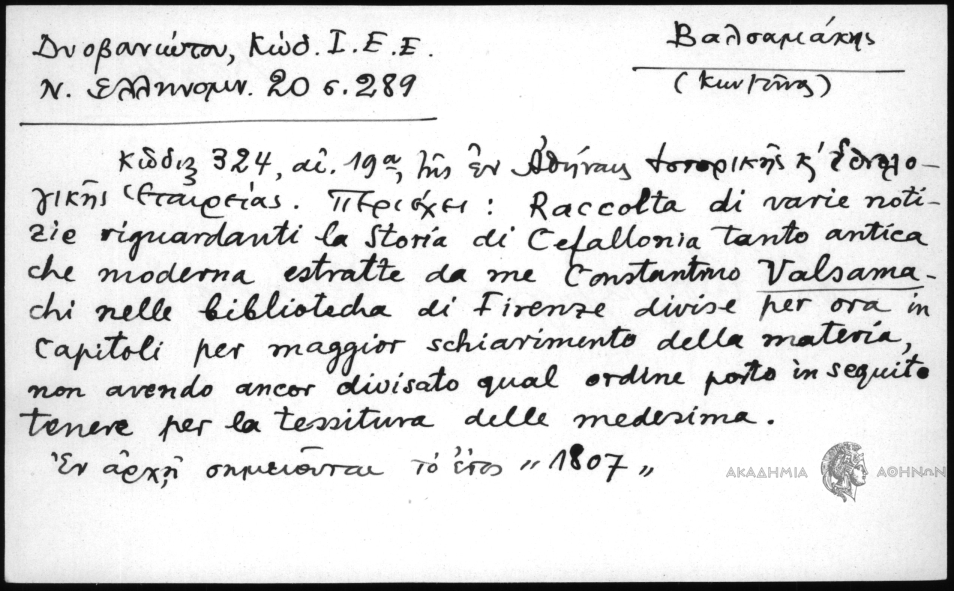 Δυοβανιώτου, Κώδ. Ι.Ε.Ε.
Ν. Ελληνομν. 20 σ. 289
Βαλσαμάκης
(Κων/τῖνος)
Κῶδιξ 324, αἰ. 19ᵒᵘ, τῆς ἐν Ἀθήναις Ἱστορικῆς κ' Ἐθνολο-
γικῆς Ἑταιρείας. Περιέχει: Raccolta di varie noti-
zie riguardanti la Storia di Cefallonia tanto antica
che moderna estratte da me Constantino Valsama-
chi nelle bibliotecha di Firenze divise per ora in
Capitoli per maggior schiarimento della materia,
non avendo ancor divisato qual ordine posto in seguito
tenere per la tessitura delle medesima.
Ἐν ἀρχῇ σημειοῦται τὸ ἔτος „1807„
ΑΚΑΔΗΜΙΑ ΑΘΗΝΩΝ